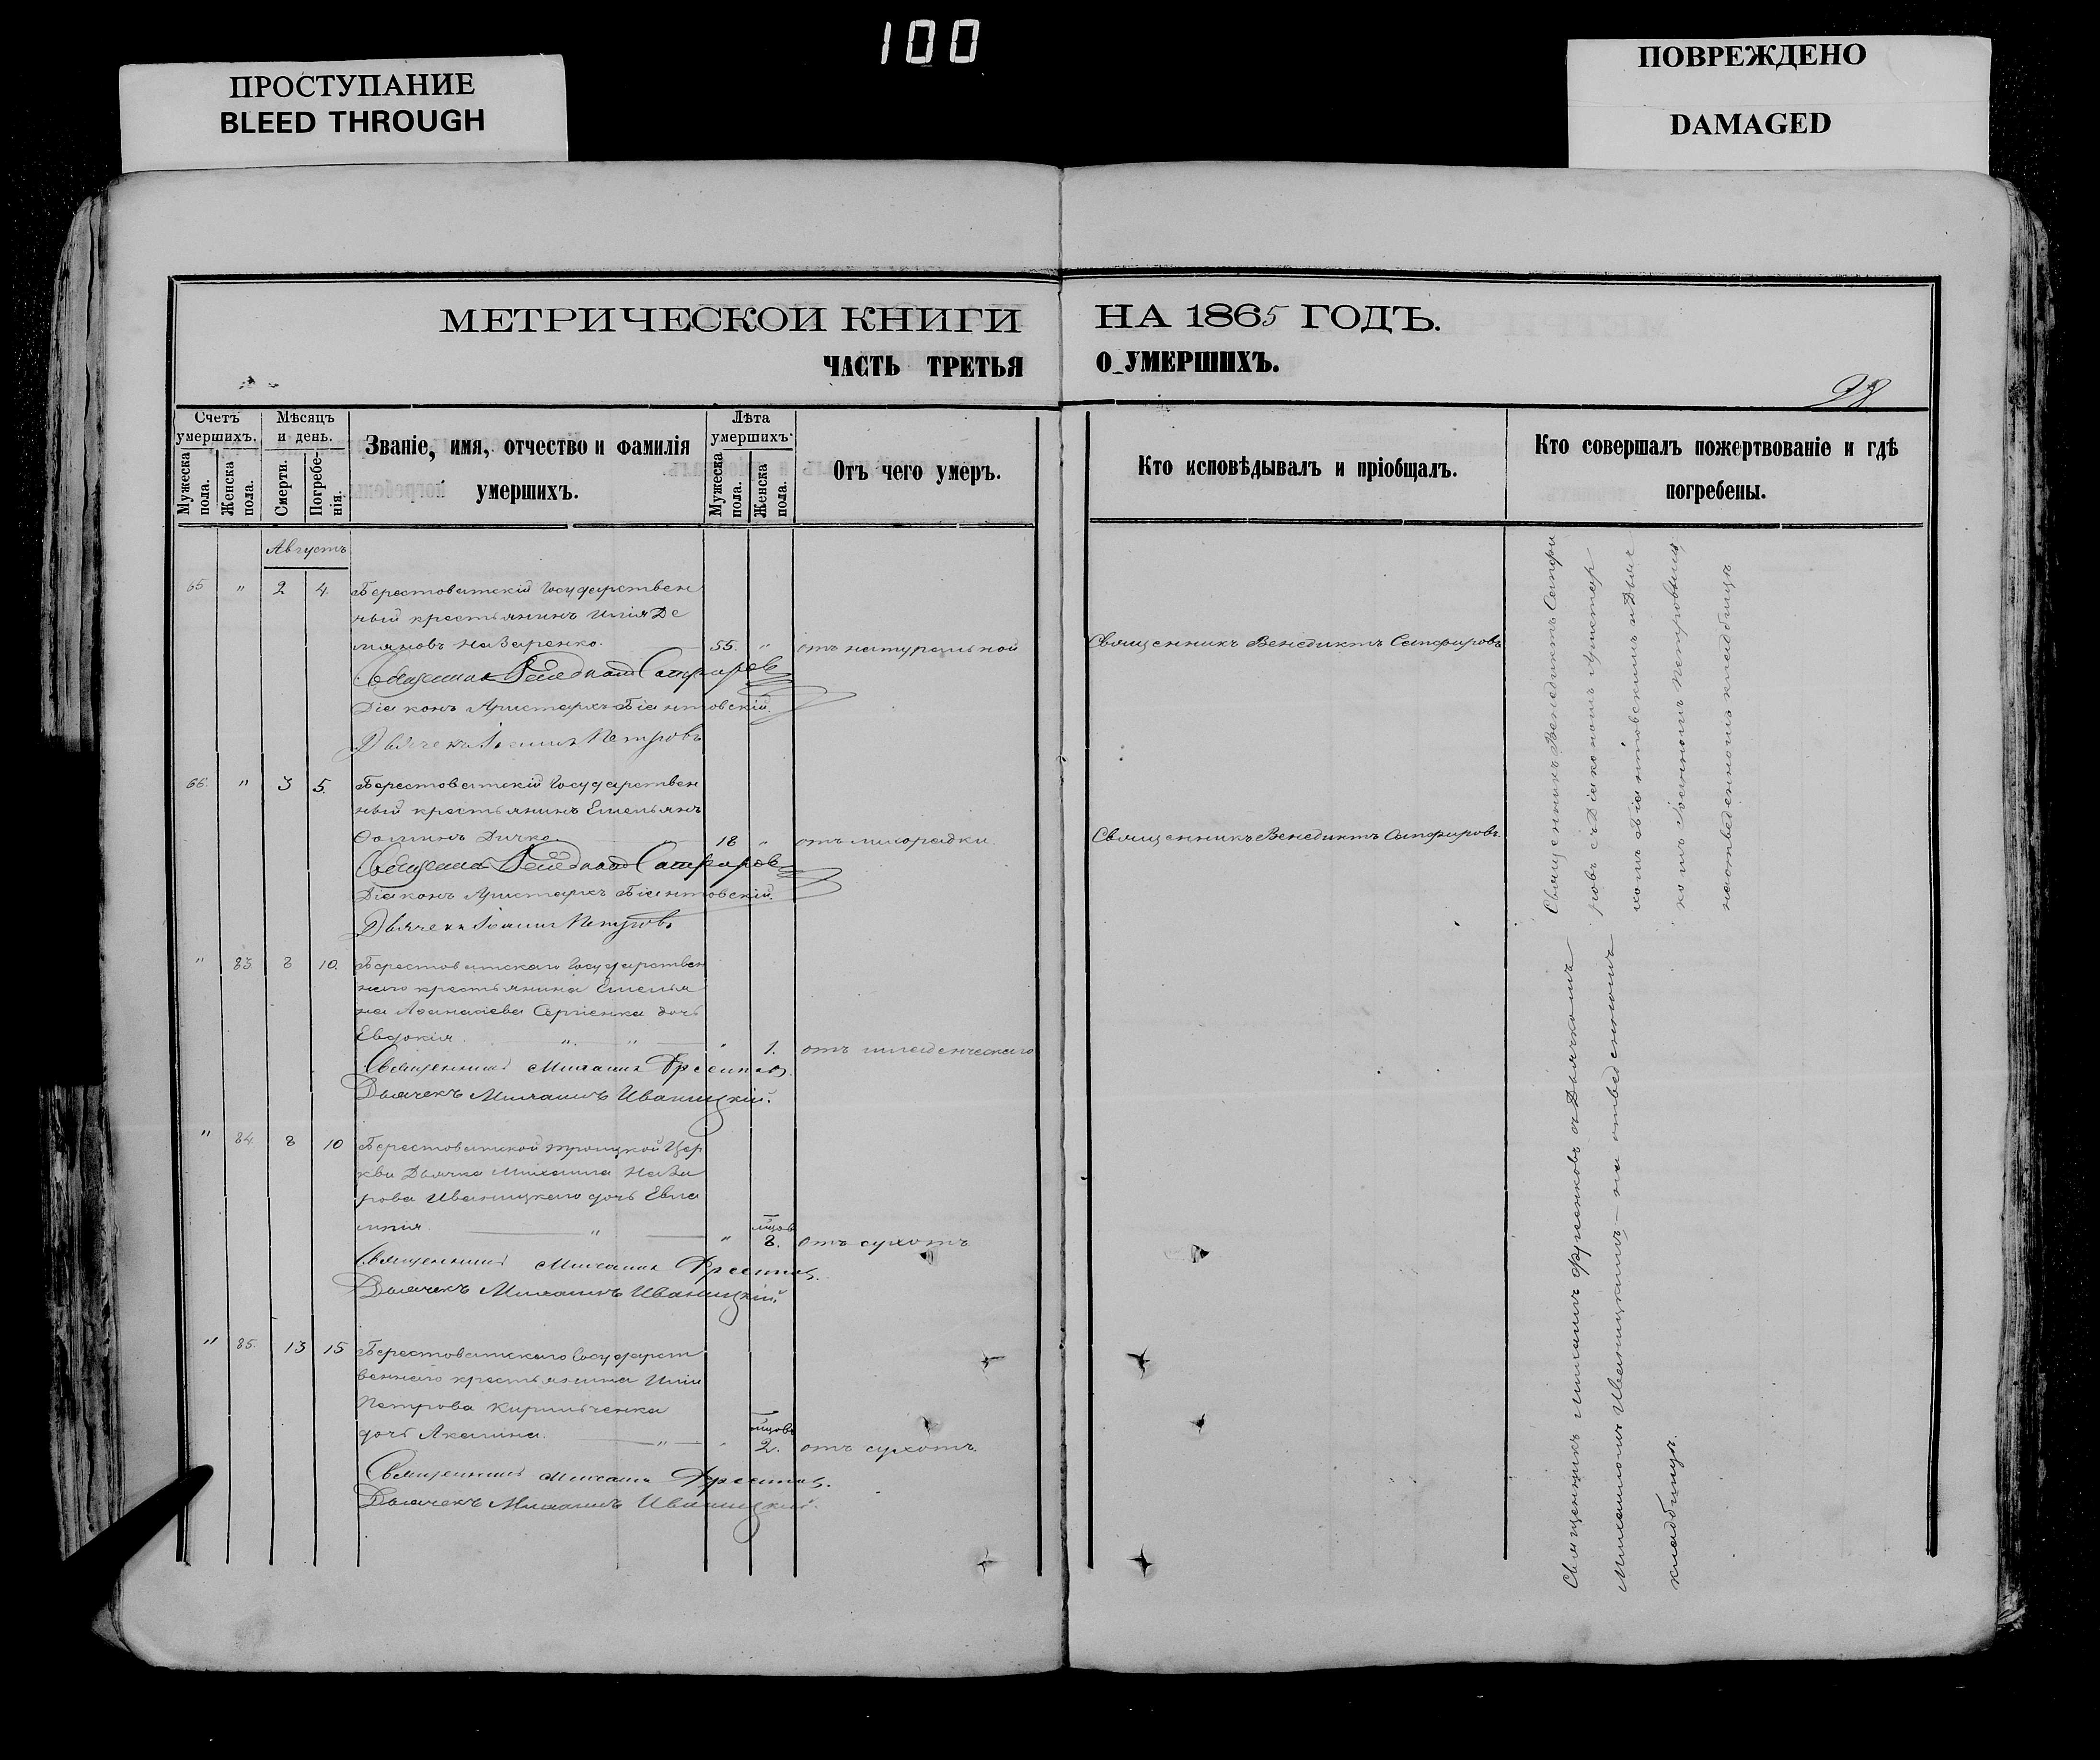 100
ПРОСТУПАНИЕ
BLEED THROUGH
ПОВРЕЖДЕНО
DAMAGED
МЕТРИЧЕСКОЙ КНИГИ НА 1865 ГОДЪ.
ЧАСТЬ ТРЕТЬЯ О УМЕРШИХЪ.
98
Счетъ умершихъ.
Мужеска пола.
Женска пола.
Мѣсяцъ и день.
Смерти.
Погребенія.
Званіе, имя, отчество и фамилія
умершихъ.
Лѣта умершихъ.
Мужеска пола.
Женска пола.
Отъ чего умеръ.
Кто исповѣдывалъ и пріобщалъ.
Кто совершалъ пожертвованіе и гдѣ
погребены.
Августъ
65 " 2 4. Берестоватскій Государствен
ный крестьянинъ Илія Де
мяновъ Назаренко. 55. " отъ натуральной Священникъ Венедиктъ Сапфировъ
Священникъ Венедиктъ Сапфировъ
Діаконъ Аристархъ Біантовскій.
Дьячекъ Іоаннъ Петровъ
66. " 3 5. Берестоватскій Государствен
ный крестьянинъ Емельянъ
Фоминъ Дичко 18 " отъ лихорадки. Священникъ Венедиктъ Сапфировъ.
Священникъ Венедиктъ Сапфировъ
Діаконъ Аристархъ Біантовскій.
Дьячекъ Іоаннъ Петровъ
" 83. 8 10. Берестоватскаго Государствен
наго крестьянина Емелья
на Аѳанасіева Сергіенка дочь
Евдокія. " " " 1. отъ младенческаго
Священникъ Михаилъ
Дьячекъ Михаилъ Иваницкій.
" 84 8 10 Берестоватской Троицкой Цер
кви Дьячка Михаила Наза
рова Иваницкаго дочь Евла
мпія " " мцов 8. отъ сухотъ
Священникъ Михаилъ
Дьячекъ Михаилъ Иваницкій.
" 85. 13 15 Берестоватскаго Государст
веннаго крестьянина Иліи
Петрова Кирильченка
дочь Акилина. " " мцовъ 2. отъ сухотъ.
Священникъ Михаилъ
Дьячекъ Михаилъ Иваницкій.
Священникъ Венедиктъ Сапфи
ровъ съ Діакономъ Аристар
хомъ Біантовскимъ и Дьяч
комъ Іоанномъ Петровымъ,
на отведенномъ кладбищѣ
Священникъ Михаилъ съ Дьячкомъ
Михаиломъ Иваницкимъ – на отведенномъ
кладбищѣ.